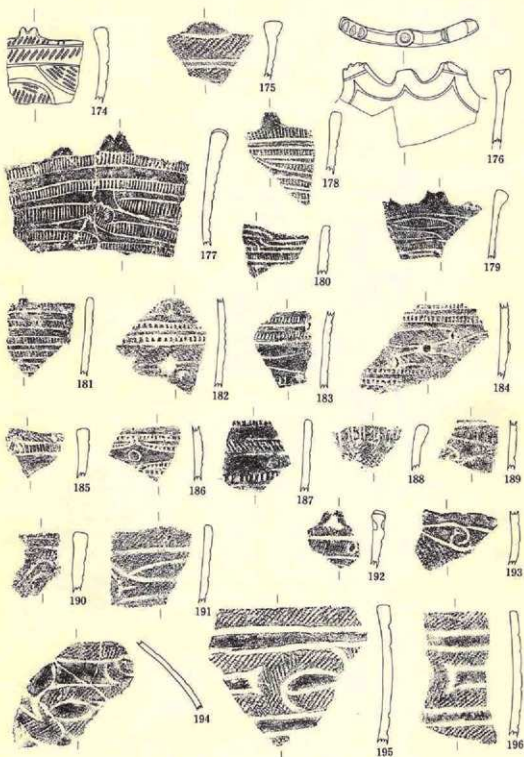 174
175
176
177
178
179
180
181
182
183
184
185
186
187
188
189
190
191
192
193
194
195
196